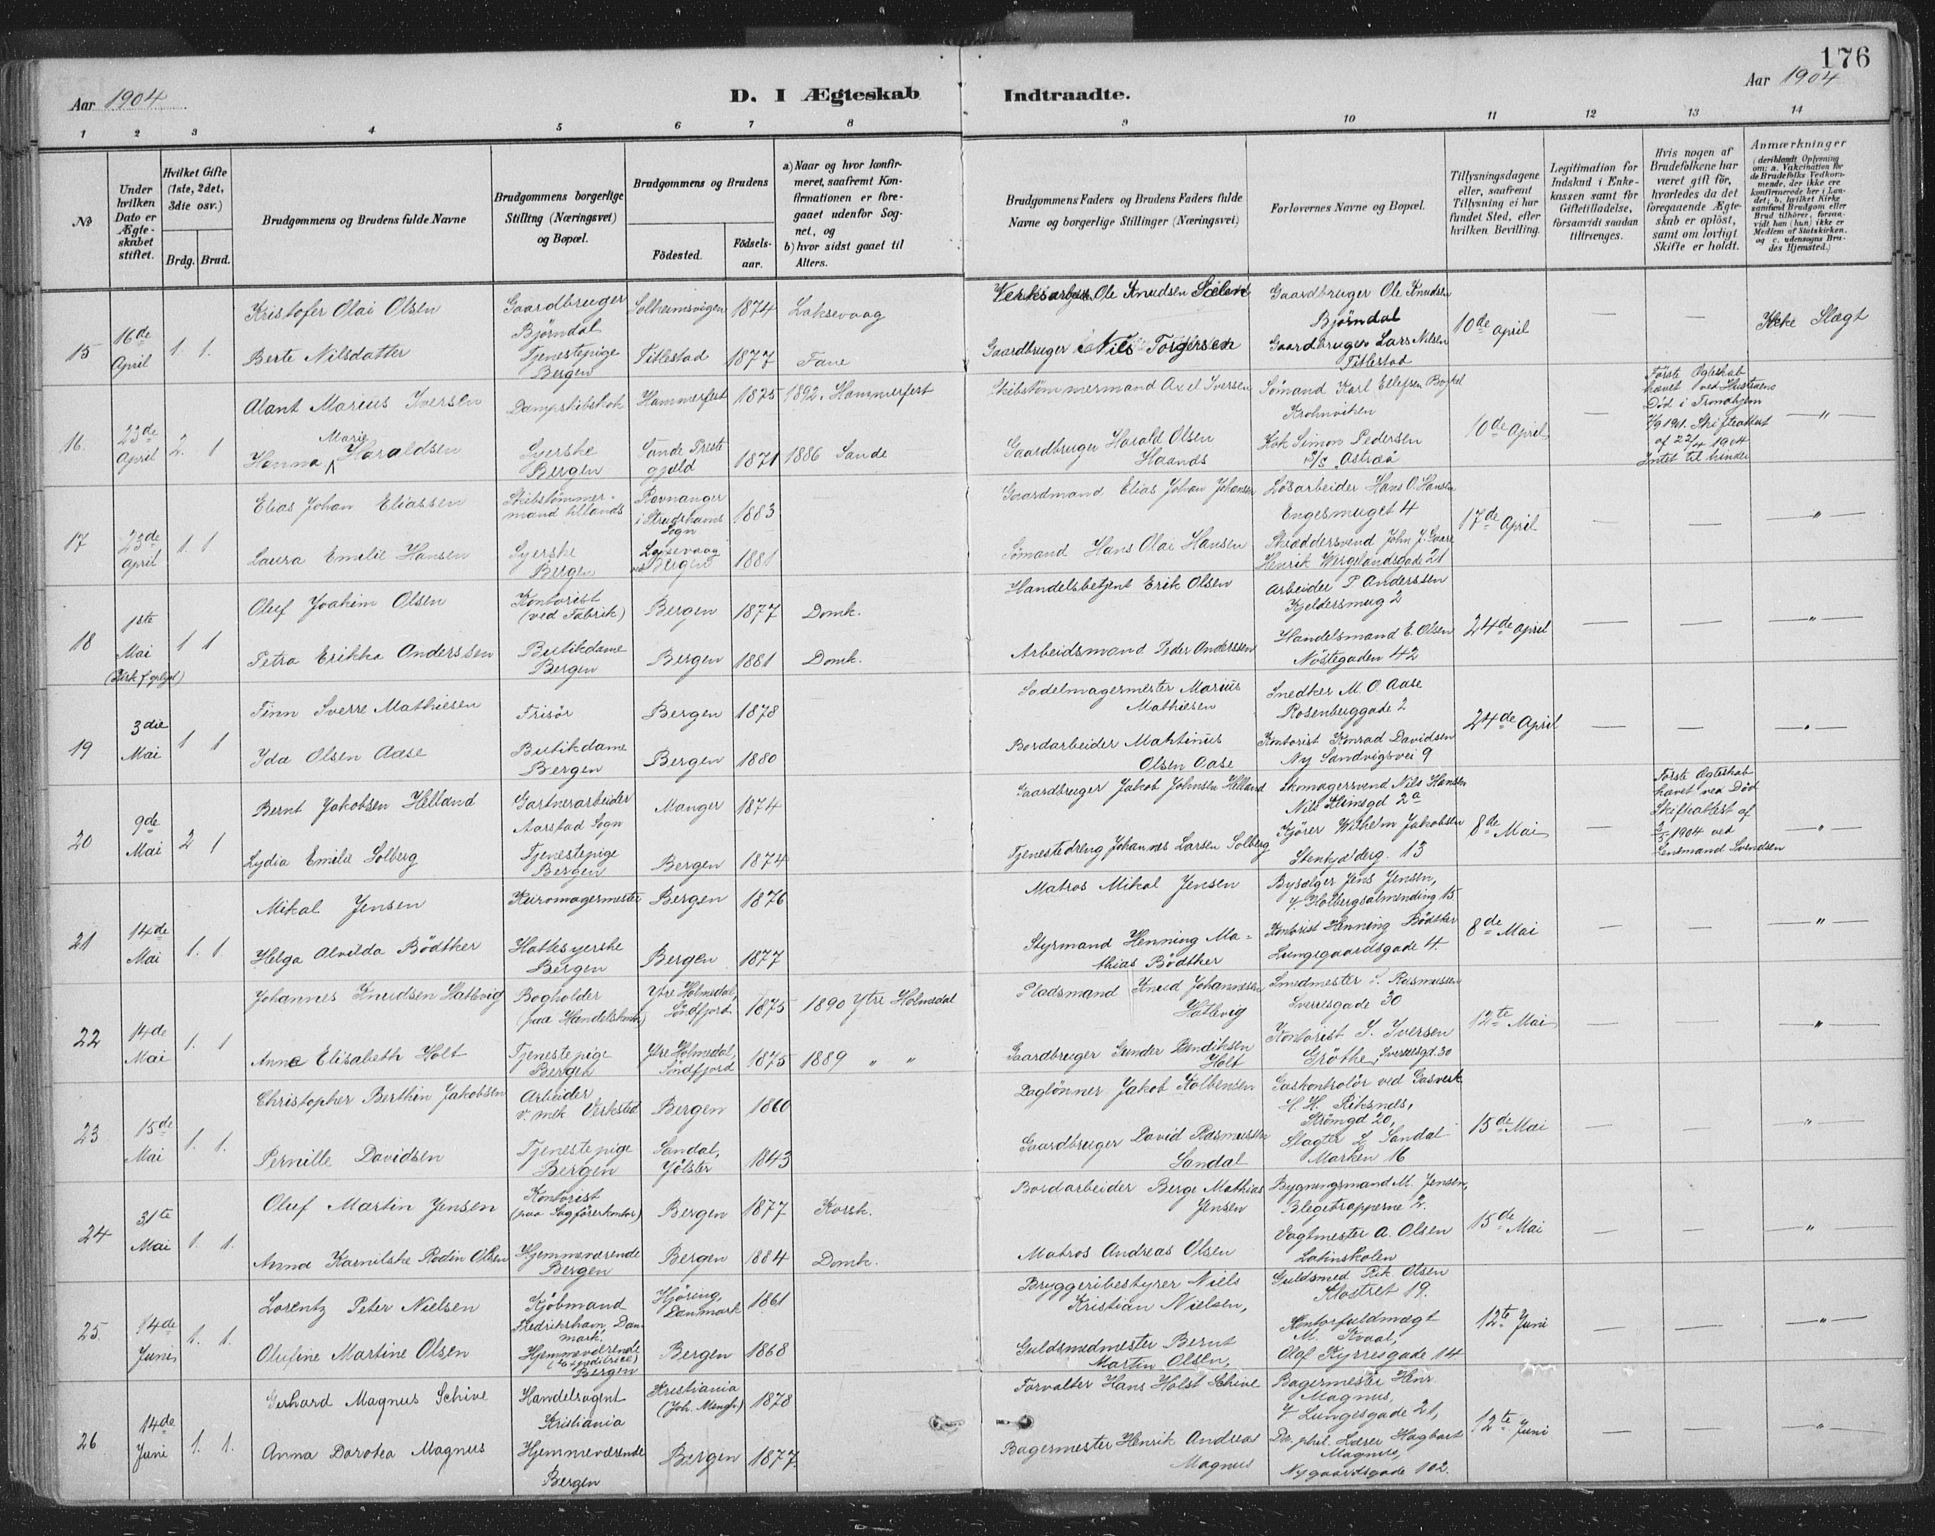 176
Aar 1904
D. I Ægteskab Indtraadte.
Aar 1904
1 2 3 4 5 6 7 8 9 10 11 12 13 14
No
Under hvilken Dato er Ægteskabet stiftet.
Hvilket Gifte (1ste, 2det, 3die osv.)
Brdg. Brud.
Brudgommens og Brudens fulde Navne
Brudgommens borgerlige Stilling (Næringsvei) og Bopæl.
Brudgommens og Brudens
Födested.
Födselsaar.
a) Naar og hvor konfirmeret, saafremt Konfirmationen er foregaaet udenför Sognet, og
b) hvor sidst gaaet til Alters.
Brudgommens Faders og Brudens Faders fulde Navne og borgerlige Stillinger (Næringsvei)
Forlovernes Navne og Bopæl.
Tillysningsdagene eller, saafremt Tillysning ei har fundet Sted, efter hvilken Bevilling.
Legitimation for Indskud i Enkekassen samt for Giftetilladelse, forsaavidt saadan tiltrænges.
Hvis nogen af Brudefolkene har været gift för, hvorledes da det foregaaende Ægteskab er oplöst, samt om lovligt Skifte er holdt.
Anmærkninger
15 16de April 1. 1.
Kristofer Olai Olsen Gaardbruger Björndal Solheimsvigen 1874 Laksevaag
Verksarbeid. Ole Knudsen Sæland Gaardbruger Ole Knudsen Björndal
10de April — — Ikke Slægt
Berte Nilsdatter Tjenestepige Bergen Titlestad 1877 Fane
Gaardbruger Nils Torgersen Gaardbruger Lars Nilsen Titlestad
16. 23de April 2. 1
Alant Marius Iversen Dampskibskok Hammerfest 1875 1892. Hammerfest
Skibstömmermand Axel Iversen Sömand Karl Ellefsen Krohnviken
10de April —
Förste Egteskab hævet ved Hustruens Död i Tronahjem
Skifteattest af 22/4 1904 Intet til hinder
— " —
Hanna Marie Haraldsen Syerske Bergen Sande Prestegjæld 1871 1886 Sande
Gaardbruger Harald Olsen Haands Kok Simon Pedersen S/S "Astræa"
17 23de April 1. 1
Elias Johan Eliassen Skibstömmermand tillands Ravnanger i Strudshavns Sogn 1883
Gaardmand Elias Johan Johansen Lösarbeider Hans O. Hansen Engesmuget 4
17de April — — — " —
Laura Emilie Hansen Syerske Bergen Laksevaag ved Bergen 1881
Sömand Hans Olai Hansen Skræddersvend John J. Henrik Wergelandsgade 21
18 1ste Mai 1 1
Oluf Joakim Olsen Kontorist (ved Fabrik) Bergen 1877 Domk.
Handelsbetjent Erik Olsen Arbeider P Anderssen Kjeldersmug 2
24de April — — — " —
Petra Erikka Anderssen Butikdame Bergen Bergen 1881 Domk.
Arbeidsmand Peder Anderssen Handelsmand E. Olsen Nöstegaden 42
19 3die Mai 1 1
Finn Sverre Mathiesen Frisör Bergen 1878
Sadelmagermester Marius Mathiesen Snedker M. O. Aase Rosenberggade 2
24de April — — — " —
Ida Olsen Aase Butikdame Bergen Bergen 1880
Bordarbeider Martinus Olsen Aase Kontorist Konrad Davidsen Ny Sandvigsvei 9
20 9de Mai 2 1
Bernt Jakobsen Helland Gartnerarbeider Aarstad Sogn Manger 1874
Gaardbruger Jakob Johnsen Helland Skomagersvend Nils Hansen Nils Klimsgd 2a
8de Mai —
Förste Egteskab hævet ved Död Skifteattest af 2/5 1904 ved Lensmand Svendsen
— " —
Lydia Emilie Solberg Tjenestepige Bergen Bergen 1874
Tjenestedreng Johannes Larsen Solberg Kjörer Wilhelm Jakobsen Stenkjælderg. 13
21 14de Mai 1. 1
Mikal Jensen Keiromagermester Bergen 1876
Matros Mikal Jensen Bysælger Jens Jensen, V. Holbergsalmending 15
8de Mai — — — " —
Helga Alvilda Bödtker Hattesyerske Bergen Bergen 1877
Styrmand Henning Mathias Bödtker Kontorist Henning Bödtker Lungegaardsgade 4
22 14de Mai 1. 1
Johannes Knudsen Hatlevig Bogholder (paa Handelskontor) Ytre Holmedal, Söndfjord 1875 1890 Ytre Holmedal
Pladsmand Knud Johannessen Hatlevig Smedmester S. Rasmussen Sverresgade 30
12te Mai — — — " —
Anne Elisabeth Holt Tjenestepige Bergen Ytre Holmedal, Söndfjord 1875 1889 " "
Gaardbruger Gunder Hendiksen Holt Kontorist S. Iversen Gröthe, Sverresgd. 30
23 15de Mai 1. 1.
Christopher Berthin Jakobsen Arbeider v. mek Verksted Bergen 1860
Daglönner Jakob Kolbensen Gaskontrolör ved Gasverk H. H. Riksnes, Strömgd 20,
15de Mai — — — " —
Pernille Davidsen Tjenestepige Bergen Sandal, Jölster 1843
Gaardbruger David Rasmussen Sandal Slagter L. Sandal Marken 16
24 31te Mai 1. 1.
Oluf Martin Jensen Kontorist (paa Sagförerkontor) Bergen 1877 Korsk.
Bordarbeider Berge Mathias Jensen Bygningsmand M. Jensen, Blegetrapperne 2.
15de Mai — — — " —
Anna Karnilske Rodin Olsen Hjemmeværende Bergen Bergen 1884 Domk.
Matros Andreas Olsen Vagtmester A. Olsen Latinskolen
25. 14de Juni 1. 1.
Lorentz Peter Nielsen Kjöbmand Fredrikshavn, Danmark, Hjöring, Danmark 1861
Bryggeribestyrer Niels Kristian Nielsen, Guldsmed Rik Olsen Klostret 19.
12te Juni — — — " —
Olufine Martine Olsen Hjemmeværende Bergen Bergen 1868
Guldsmedmester Bernt Martin Olsen, Kontorfuldmægt M. Kvaal, Olaf Kyrresgade 14
26 14de Juni 1. 1.
Gerhard Magnus Schive Handelsagent Kristiania Kristiania (Joh. Mengh.) 1878
Forvalter Hans Holst Schive Bagermester Henr Magnus, V Lungesgade 21,
12te Juni — — — " —
Anna Dorotea Magnus Hjemmeværende Bergen Bergen 1877
Bagermester Henrik Andreas Magnus Dr. phil. Lærer Hagbart Magnus, Nygaardsgade 102.